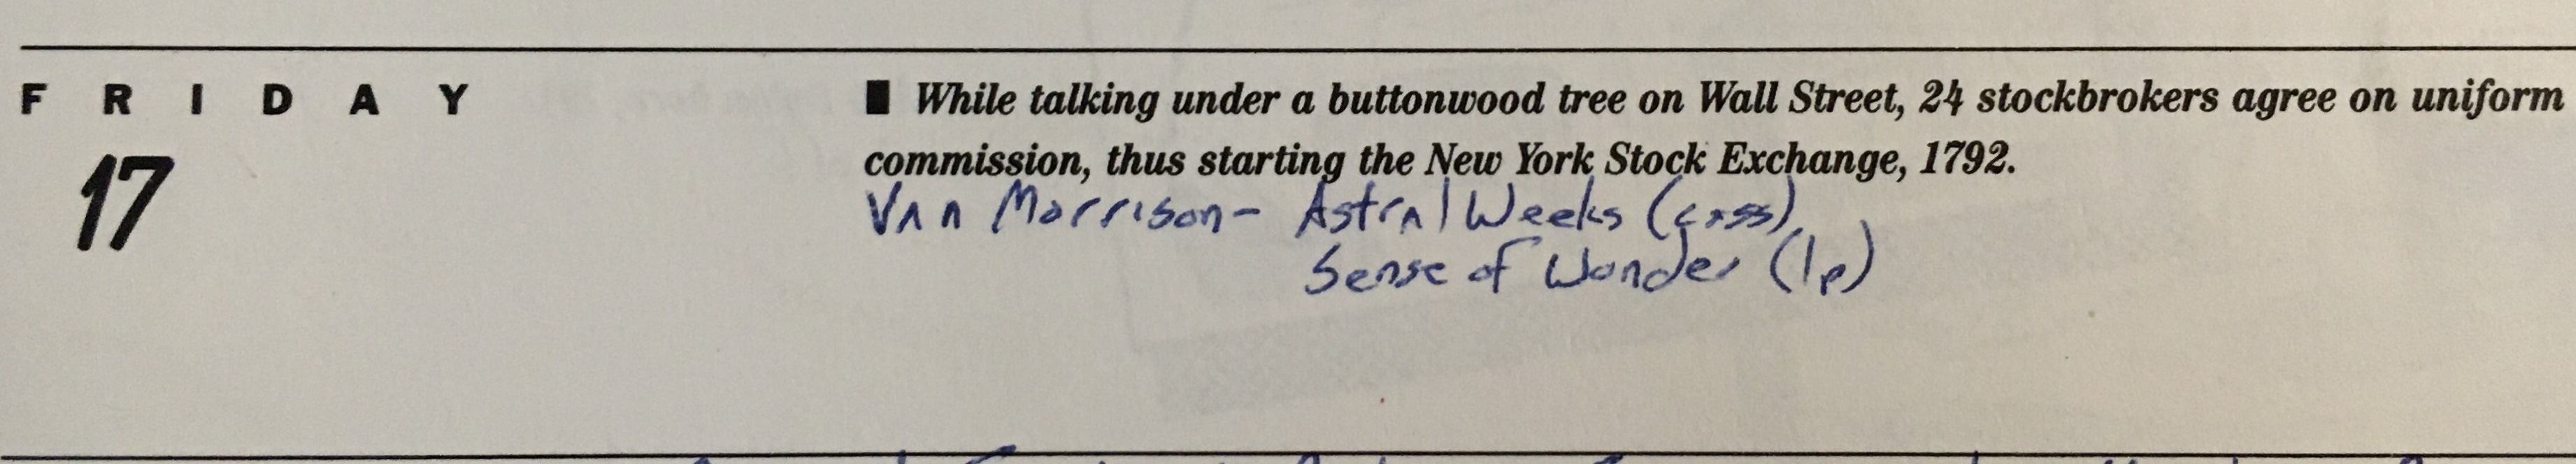 FRIDAY
17
■ While talking under a buttonwood tree on Wall Street, 24 stockbrokers agree on uniform
commission, thus starting the New York Stock Exchange, 1792.
Van Morrison - Astral Weeks (cass)
Sense of Wonder (lp)